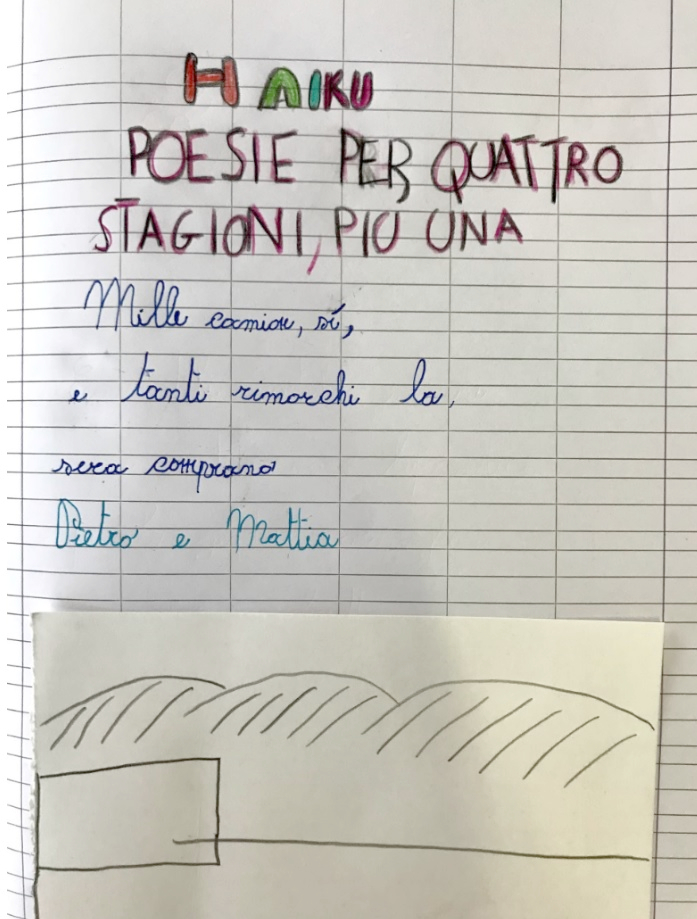 HAIKU
POESIE PER QUATTRO
STAGIONI, PIU UNA
Mille camion, sí,
e tanti rimorchi la,
sera comprano
Pietro e Mattia